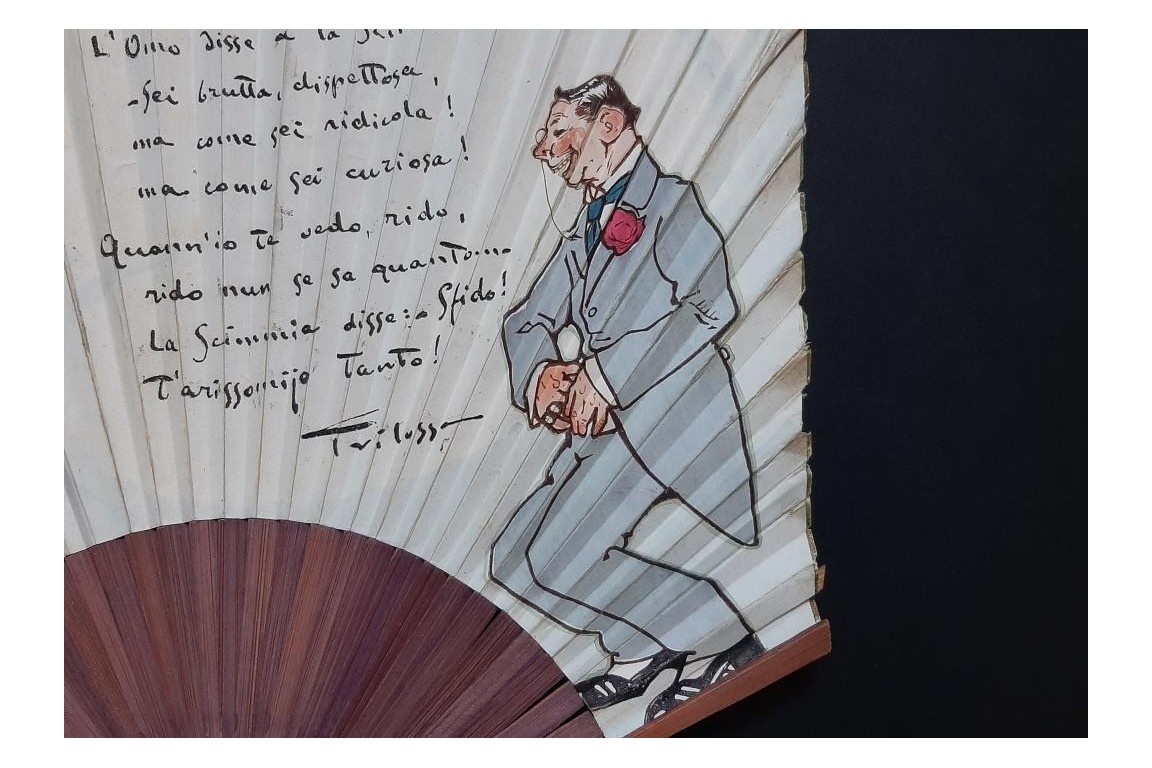 L'Omo disse a la
-Sei brutta, dispettosa,
ma come sei ridicola!
ma come sei curiosa!
Quann'io te vedo, rido,
rido nun se sa quanto....
La Scimmia disse:- Sfido!
T'arissomijo tanto!
Trilussa